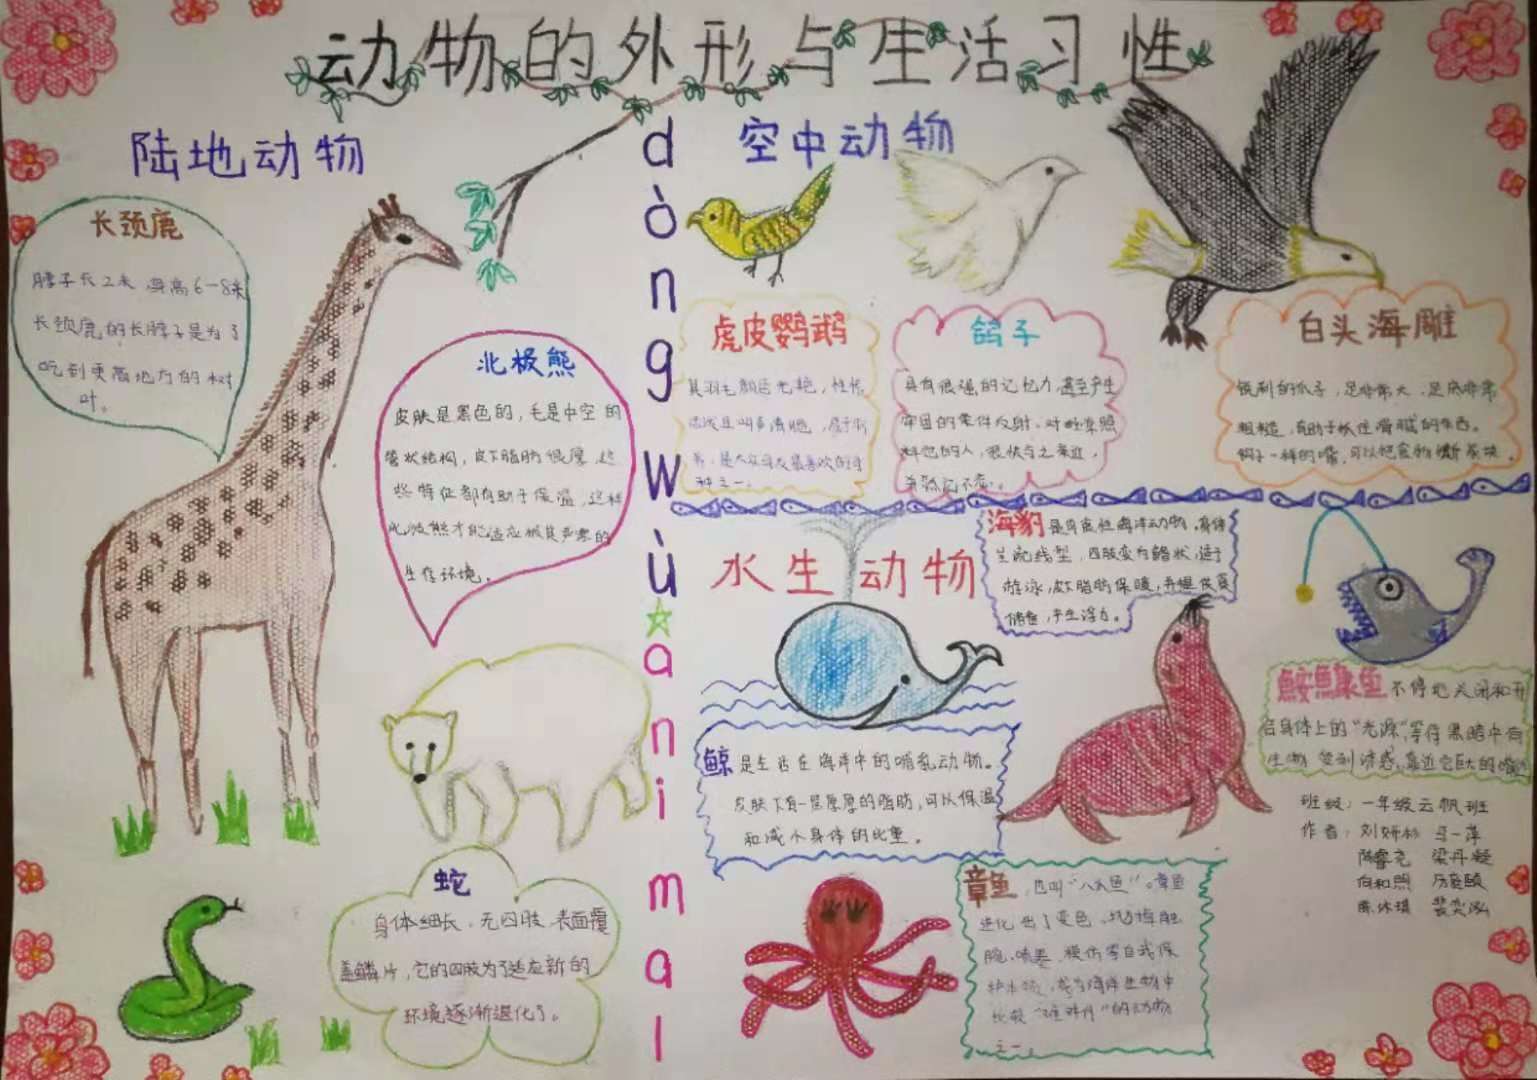 动物的外形与生活习性
陆地动物
长颈鹿
脖子长2米 身高6-8米
长颈鹿的长脖子是为了
吃到更高地方的树
叶。
北极熊
皮肤是黑色的，毛是中空的
管状结构，皮下脂肪很厚，这
些特征都有助于保温，这样
北极熊才能适应极其严寒的
生存环境。
蛇
身体细长，无四肢，表面覆
盖鳞片，它的四肢为了适应新的
环境逐渐退化了。
dòng wù ☆ animal
空中动物
虎皮鹦鹉
其羽毛颜色光艳，性情
活泼且叫声清脆，易于驯
养，是大众鸟友最喜欢的鸟
种之一。
鸽子
具有很强的记忆力，甚至产生
牢固的条件反射，对经常照
料它的人，很快与之亲近，
并熟记不忘。
白头海雕
锐利的爪子，足非常大，足底非常
粗糙，有助于抓住滑腻的东西。
钩子一样的嘴，可以把食物撕成块。
水生动物
海豹是鳍足性海洋动物，身体
呈流线型，四肢变为鳍状，适于
游泳，皮下脂肪保暖，并提供食
储备，产生浮力。
鮟鱇鱼 不停地关闭和开
启身体上的“光源”，等待黑暗中有
生物受到诱惑，靠近它巨大的嘴边
鲸是生活在海洋中的哺乳动物。
皮肤下有一层厚厚的脂肪，可以保温
和减小身体的比重。
章鱼，也叫“八爪鱼”。章鱼
进化出了变色、
腕、喷墨、模仿等自我保
护本领，成为海洋生物中
比较“难对付”的动物
之一。
班级：一年级云帆班
作者：刘妍杉 马一萍
陈睿尧 梁丹凝
向和煦